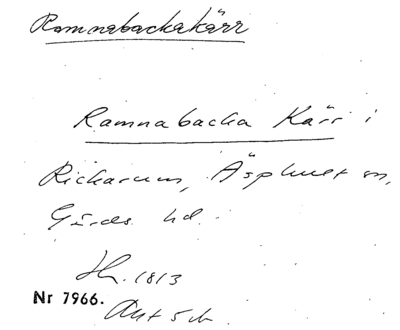 Ramnabackakärr
Ramnabacka Kärr i
Rickarum, Äsphult sn,
Gärds hd.
1813
Nr 7966.